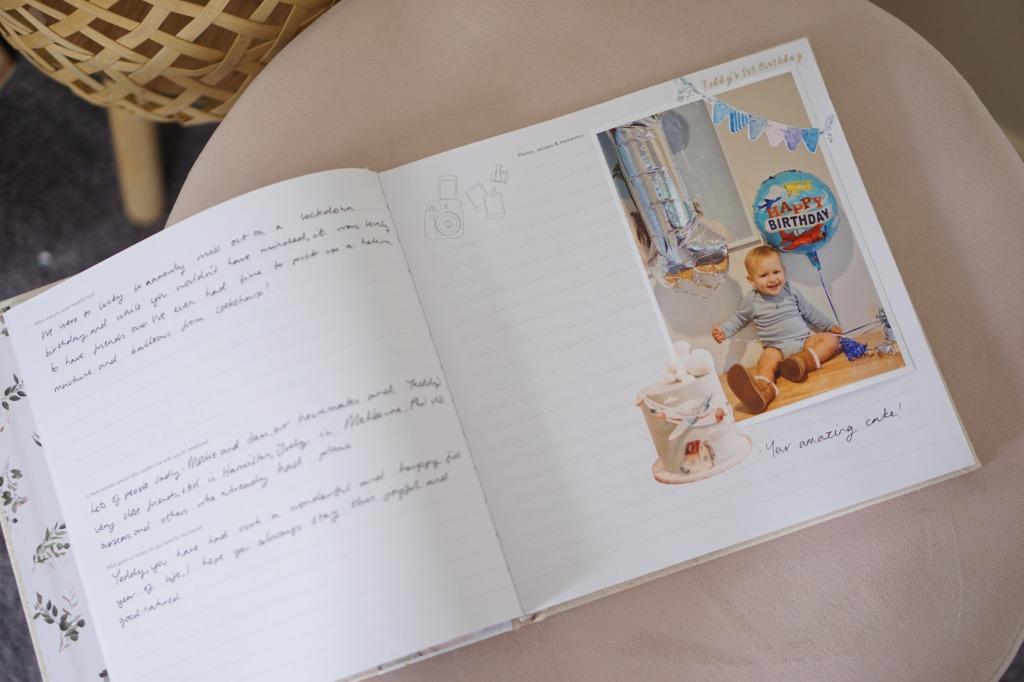 What are you most thankful for?
We were so lucky to narrowly miss out on a lockdown
birthday, and while you wouldn't have minded, it was lovely
to have friends over. We even had time to pick up a helium
machine and balloons from Looksharp!
Is there anyone special who couldn't be with you to celebrate?
Lots of people sadly. and Sam, our housemates and Teddy's
very close friends, in Hamilton, in Melbourne,
and others who already had plans
What goals or wishes do you have for the future?
Teddy, you have had such a wonderful and happy first
year of life, I hope you always stay this joyful and
good-natured.
Photos, recipes & mementos
Teddy's 1st Birthday
HAPPY
BIRTHDAY
. Your amazing cake!